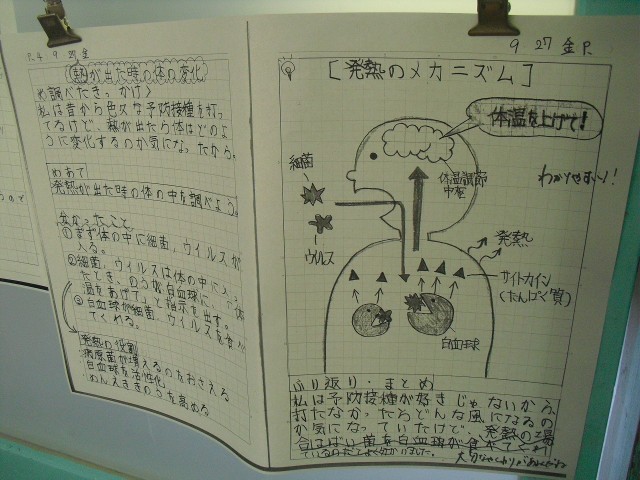 P.4 9 27 金
熱が出た時の体の変化
〈調べたきっかけ〉
私は昔から色々な予防接種を打っ
てるけど、熱が出たら体はどのよ
うに変化するのか気になったから。
めあて
発熱が出た時の体の中を調べよう。
分かったこと
①まず体の中に細菌、ウイルスが
入る。
②細菌、ウイルスは体の中に入っ
たとき、のうが白血球に、「体
温をあげて」と指示を出す。
③白血球が細菌、ウイルスを食べ
てくれる。
発熱の役割
病原菌が増えるのをおさえる
白血球を活性化
めんえききのうを高める
9 27 金 P.
[発熱のメカニズム]
体温を上げて!
細菌
体温調節
中枢
わかりやすい!
ウイルス
発熱
サイトカイン
(たんぱく質)
白血球
ふり返り・まとめ
私は予防接種が好きじゃないから、
打たなかったらどんな風になるの
か気になっていたけど、発熱の場
合はばい菌を白血球が食べてくれ
ているのだとよく分かりました。